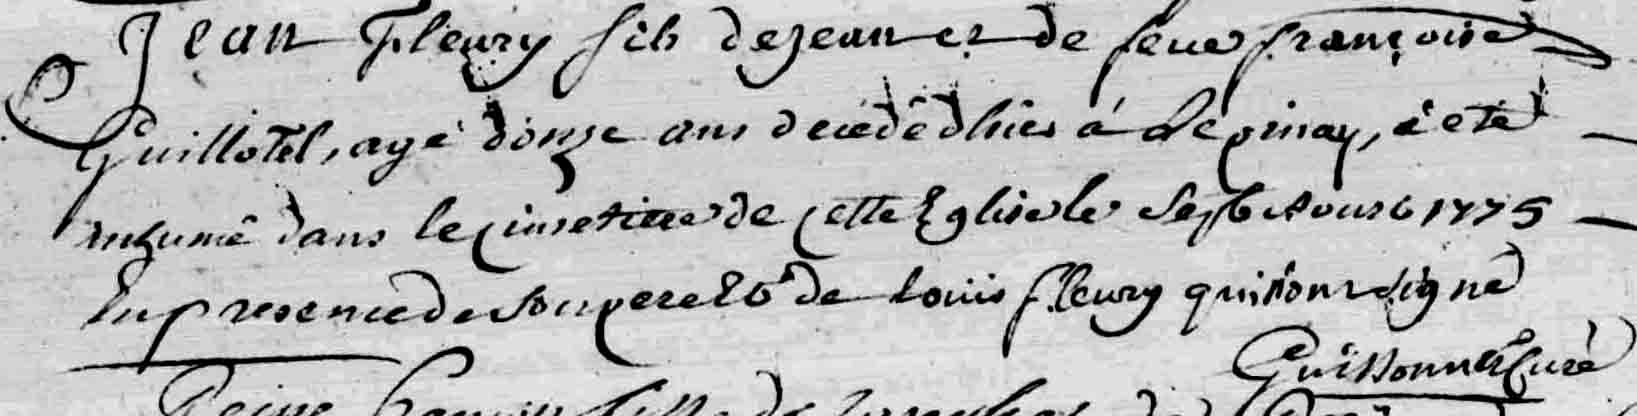 Jean Fleury fils de Jean et de feue françoise
Guillotel, agé d'onze ans decedé d'hier à Lepinay, a eté
inhumé dans le cimetiere de cette Eglise le sept Aout 1775
En presence de son pere Et de Louis fleury qui n'ont signé
curé
fille de